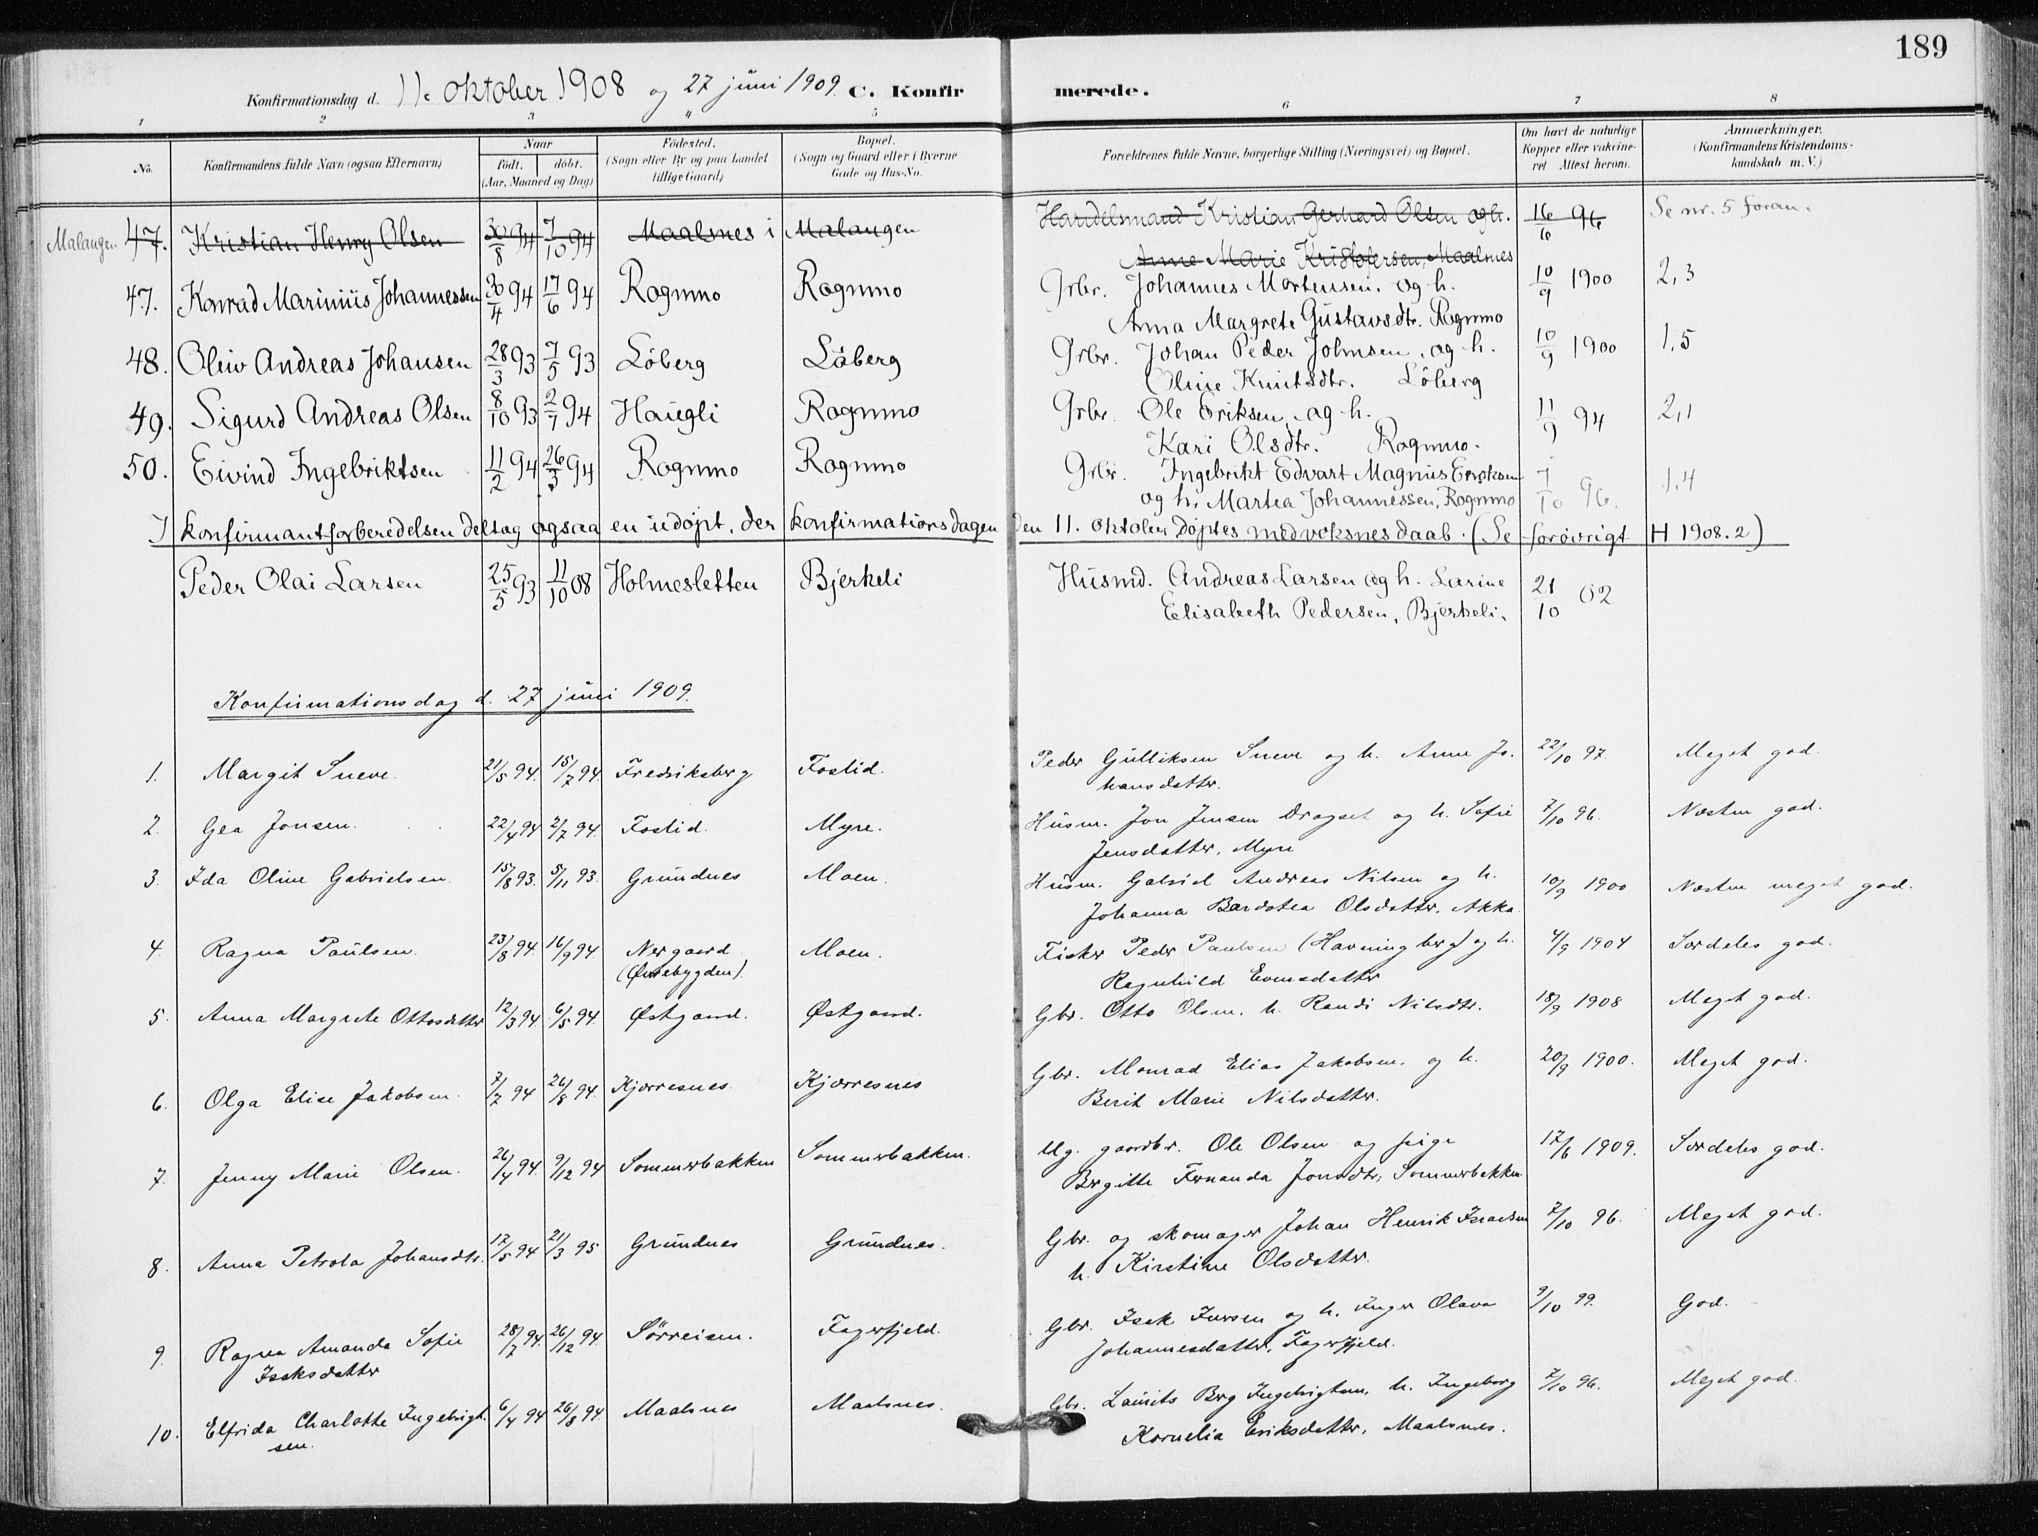 189
Konfirmationsdag d. 11. oktober 1908 og 27 juni 1909. C. Konfirmerede.
1 2 3 4 5 6 7 8
No. Konfirmandens fulde Navn (ogsaa Efternavn) Naar født. døbt. (Aar, Maaned og Dag) Födested. (Sogn eller By og paa Landet tillige Gaard) Bopæl. (Sogn og Gaard eller i Byerne Gade og Hus-No. Forældrenes fulde Navne, borgerlige Stilling (Næringsvei) og Bopæl. Om havt de naturlige Kopper eller vakcineret Attest herom. Anmærkninger. (Konfirmandens Kristendomskundskab m. V.)
Malangen 47. Kristian Henry Olsen 30/8 94 7/10 94 Maalsnes i Malangen Handelsmand Kristian Gerhard Olsen og h. 16/6 96 Se nr. 5 foran.
Anne Marie Kristofersen, Maalsnes
47. Konrad Marinius Johannessen 30/4 94 17/6 94 Rognmo Rognmo Grbr. Johannes Mortensen. og h. 10/9 1900 2,3
Anna Margrete Gustavsdtr. Rognmo
48. Oleiv Andreas Johansen 28/3 93 7/5 93 Löberg Löberg Grbr. Johan Peder Johnsen, og h. 10/9 1900 1,5
Oline Knutsdtr. Löberg
49. Sigurd Andreas Olsen 8/10 93 2/7 94 Haugli Rognmo Grbr. Ole Eriksen, og h. 11/9 94 2,1
Kari Olsdtr. Rognmo.
50. Eivind Ingebriktsen 11/2 94 26/3 94 Rognmo Rognmo Grbr. Ingebrikt Edvart Magnus Eriksen 7/10 96. 1.4
og h. Martea Johannessen, Rognmo
I konfirmantforberedelsen deltog ogsaa en udøpt, der konfirmationsdagen den 11. oktober døptes med voksnes daab. (Se forøvrigt H 1908.2)
Peder Olai Larsen 25/5 93 11/10 08 Holmesletten Bjerkeli Husmd. Andreas Larsen og h. Larine 21/10 02
Elisabeth Pedersen, Bjerkeli.
Konfirmationsdag d. 27 juni 1909.
1. Margit Sneve. 21/5 94. 15/7 94. Fredriksberg Foslid. Peder Gulliksen Sneve og h. Anne Jo- 22/10 97. Meget god.
hansdatter.
2. Gea Jonsen. 22/4 94 2/7 94. Foslid. Myre. Husm. Jon Jensen Dragset og h. Sofie 7/10 96. Næsten god.
Jensdatter, Myre
3. Ida Oline Gabrielsen 15/8 93. 5/11 93. Grundnes Moen. Husm. Gabriel Andreas Nilsen og h. 10/9 1900 Næsten meget god.
Johanna Bardotea Olsdatter, Akka.
4. Ragna Paulsen. 23/8 94. 16/9 94. Nergaard (Øvrebygden). Moen. Fisker Peder Paulsen (Havningberg) og h. 4/9 1904 Særdeles god.
Ragnhild Evensdatter
5. Anna Margrete Ottosdatter 12/3 94. 6/5 94. Østgaard. Østgaard. Gbr. Otto Olsen, h. Randi Nilsdtr. 18/9 1908 Meget god.
6. Olga Elise Jakobsen. 7/2 94 26/8 94. Kjærresnes. Kjærresnes Gbr. Monrad Elias Jakobsen. og h. 20/9 1900. Meget god.
Berit Marie Nilsdatter.
7. Jenny Marie Olsen. 26/4 94. 9/12 94 Sommerbakken Sommerbakken. Ug. gaardbr. Ole Olsen og pige 17/6 1909. Særdeles god.
Brgitte Fernanda Jonsdtr, Sommerbakken
8. Anna Petrola Johansdtr. 17/5 94 21/3 95 Grundnes Grundnes. Gbr. og skomager Johan Henrik Israelsen 7/10 96. Meget god.
h. Kirstine Olsdatter.
9. Ragna Amanda Sofie 28/7 94. 26/12 94. Sørreisen. Fagerfjeld. Gbr. Isak Iversen og h. Inger Olava 9/10 99. God.
Isaksdatter Johannesdatter, Fagerfjeld.
10. Elfrida Charlotte Ingebrigt- 6/4 94 26/8 94. Maalsnes Maalsnes. Gbr. Laurits Berg Ingebrigtsen, h. Ingeborg 7/10 96. Meget god.
sen. Kornelia Eriksdatter, Maalsnes.